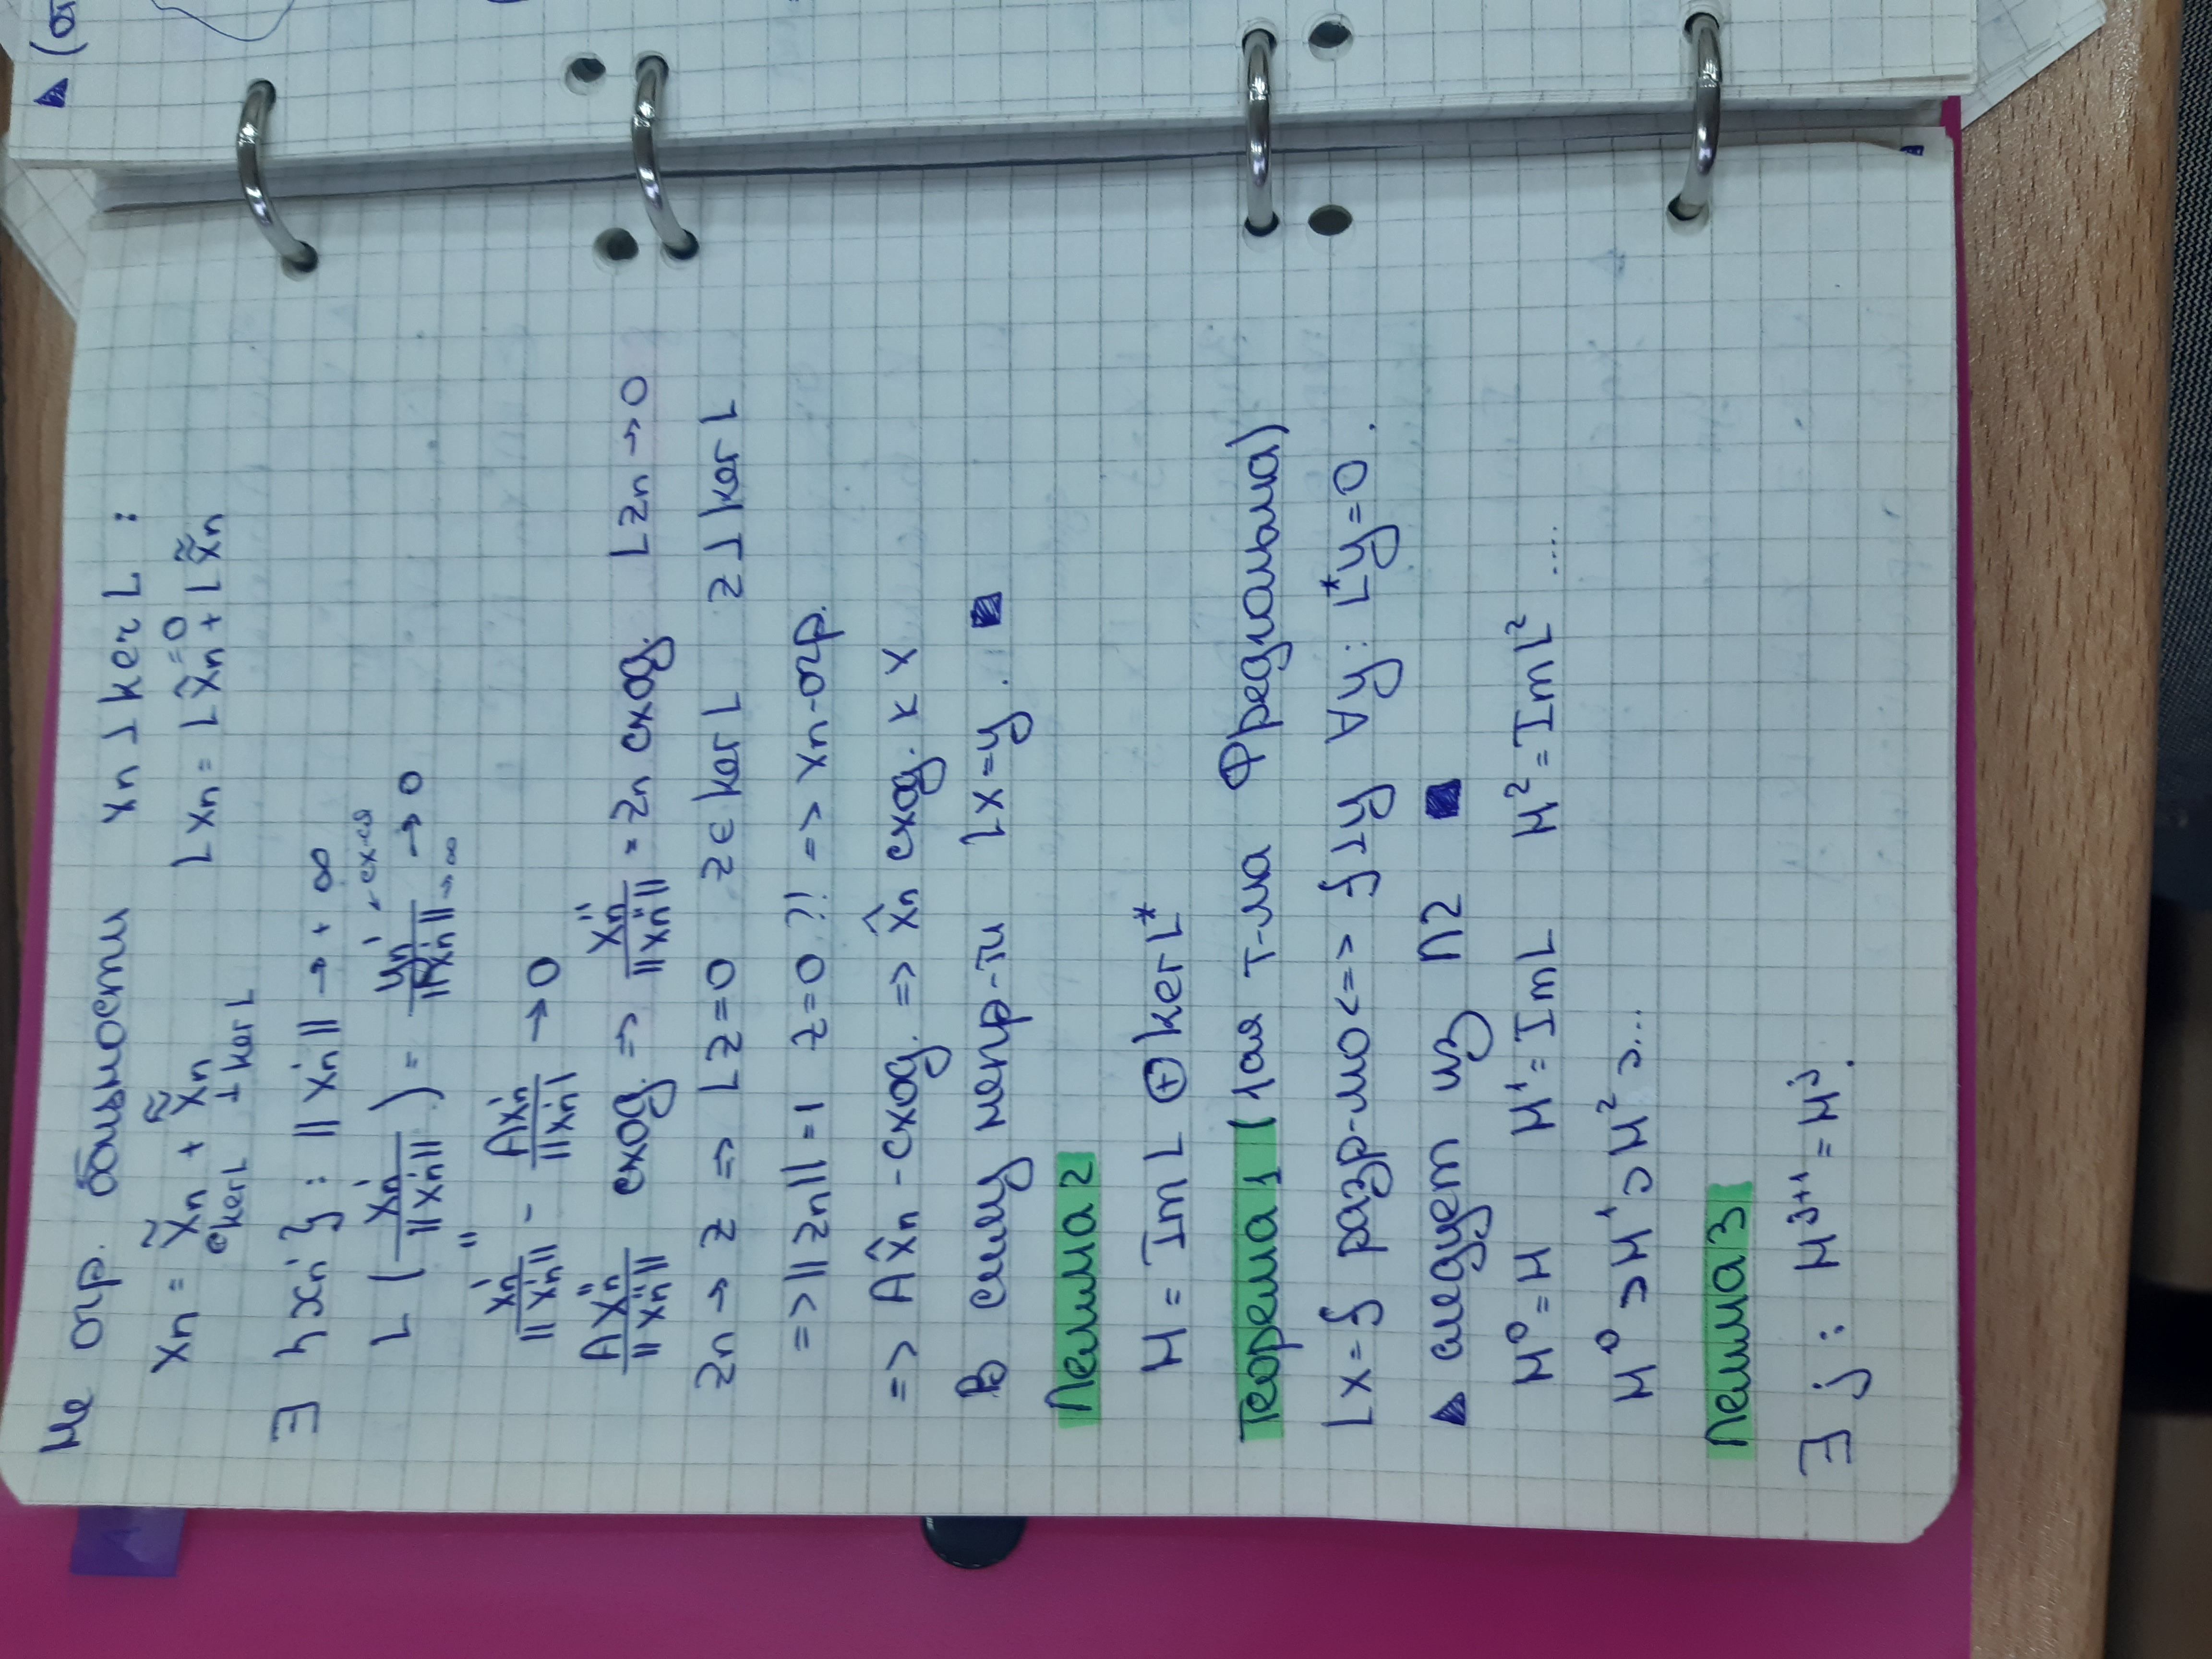 ▲ (от
Не огр. общности xₙ ⊥ ker L :
xₙ = x̃ₙ + x̃̃ₙ Lxₙ = Lx̂ₙ⁼⁰ + Lx̃̃ₙ
∈ker L ⊥ ker L
∃ {xₙ'} : ||xₙ'|| → +∞
L (xₙ' / ||xₙ'||) = yₙ' / ||xₙ'|| → 0 ← сх-ся
→ ∞
xₙ'' / ||xₙ''|| - Axₙ' / ||xₙ'|| → 0
Axₙ'' / ||xₙ''|| сход. => xₙ'' / ||xₙ''|| = zₙ сход. Lzₙ → 0
zₙ → z => Lz = 0 z ∈ ker L z ⊥ ker L
=> ||zₙ|| = 1 z = 0 ?! => xₙ - огр.
=> Ax̂ₙ - сход. => x̂ₙ сход. к x
В силу непр-ти Lx = y. ■
Лемма 2
H = Im L ⊕ ker L*
Теорема 1 (1ая т-ма Фредгольма)
Lx = f разр-мо <=> f ⊥ y ∀y : L*y = 0.
▲ следует из Л2 ■
H⁰ = H H¹ = Im L H² = Im L² ....
H⁰ ⊃ H¹ ⊃ H² ⊃ ...
Лемма 3
∃ j : Hʲ⁺¹ = Hʲ.